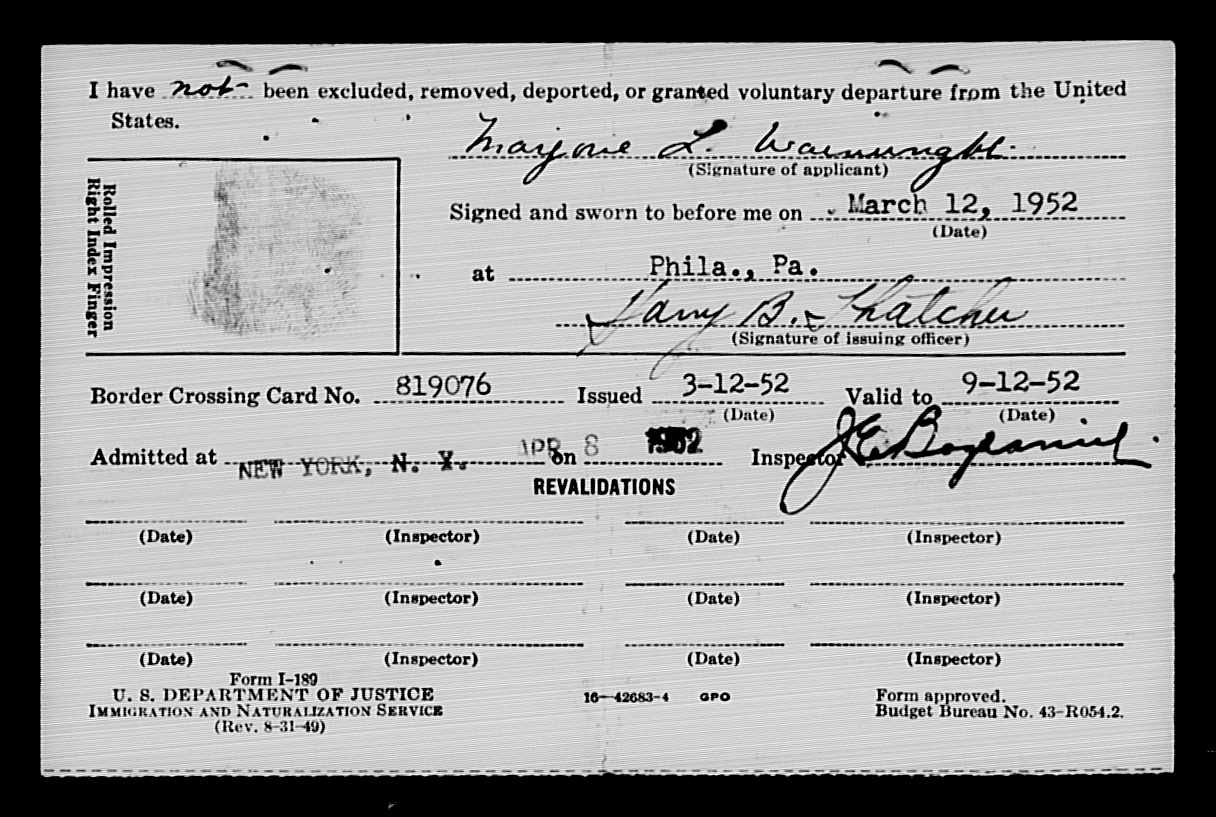 I have not been excluded, removed, deported, or granted voluntary departure from the United
States.
Marjorie L. Wainwright
(Signature of applicant)
Rolled Impression
Right Index Finger
Signed and sworn to before me on March 12, 1952
(Date)
at Phila., Pa.
Harry B. Thatcher
(Signature of issuing officer)
Border Crossing Card No. 819076 Issued 3-12-52 Valid to 9-12-52
(Date) (Date)
Admitted at NEW YORK, N. Y. on APR 8 1952 Inspector J E
REVALIDATIONS
(Date) (Inspector) (Date) (Inspector)
(Date) (Inspector) (Date) (Inspector)
(Date) (Inspector) (Date) (Inspector)
Form I-189
U. S. DEPARTMENT OF JUSTICE
IMMIGRATION AND NATURALIZATION SERVICE
(Rev. 8-31-49)
16—42683-4 GPO
Form approved.
Budget Bureau No. 43-R054.2.